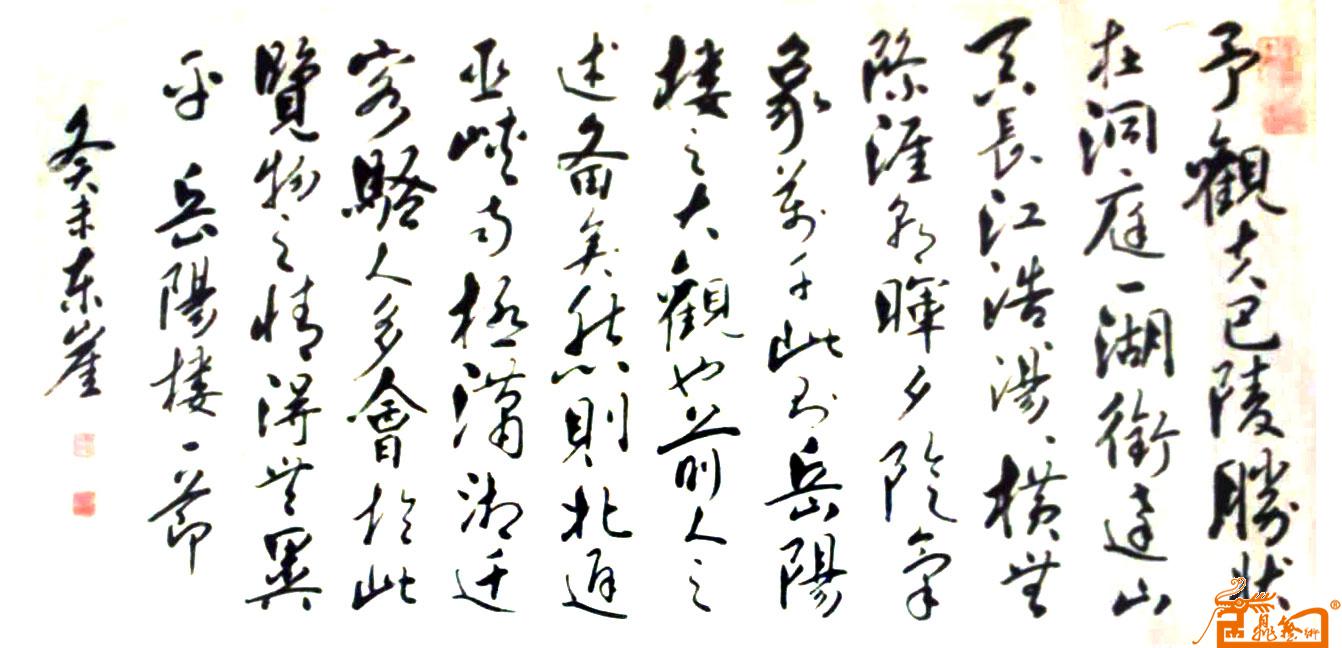 予觀夫巴陵勝狀
在洞庭一湖銜遠山
吞長江浩湯、橫無
際涯朝暉夕陰氣
象萬千此則岳陽
楼之大觀也前人之
述备矣然則北通
巫峽南極瀟湘迁
客騷人多會於此
覽物之情得無異
乎 岳陽楼一節
癸未东崖